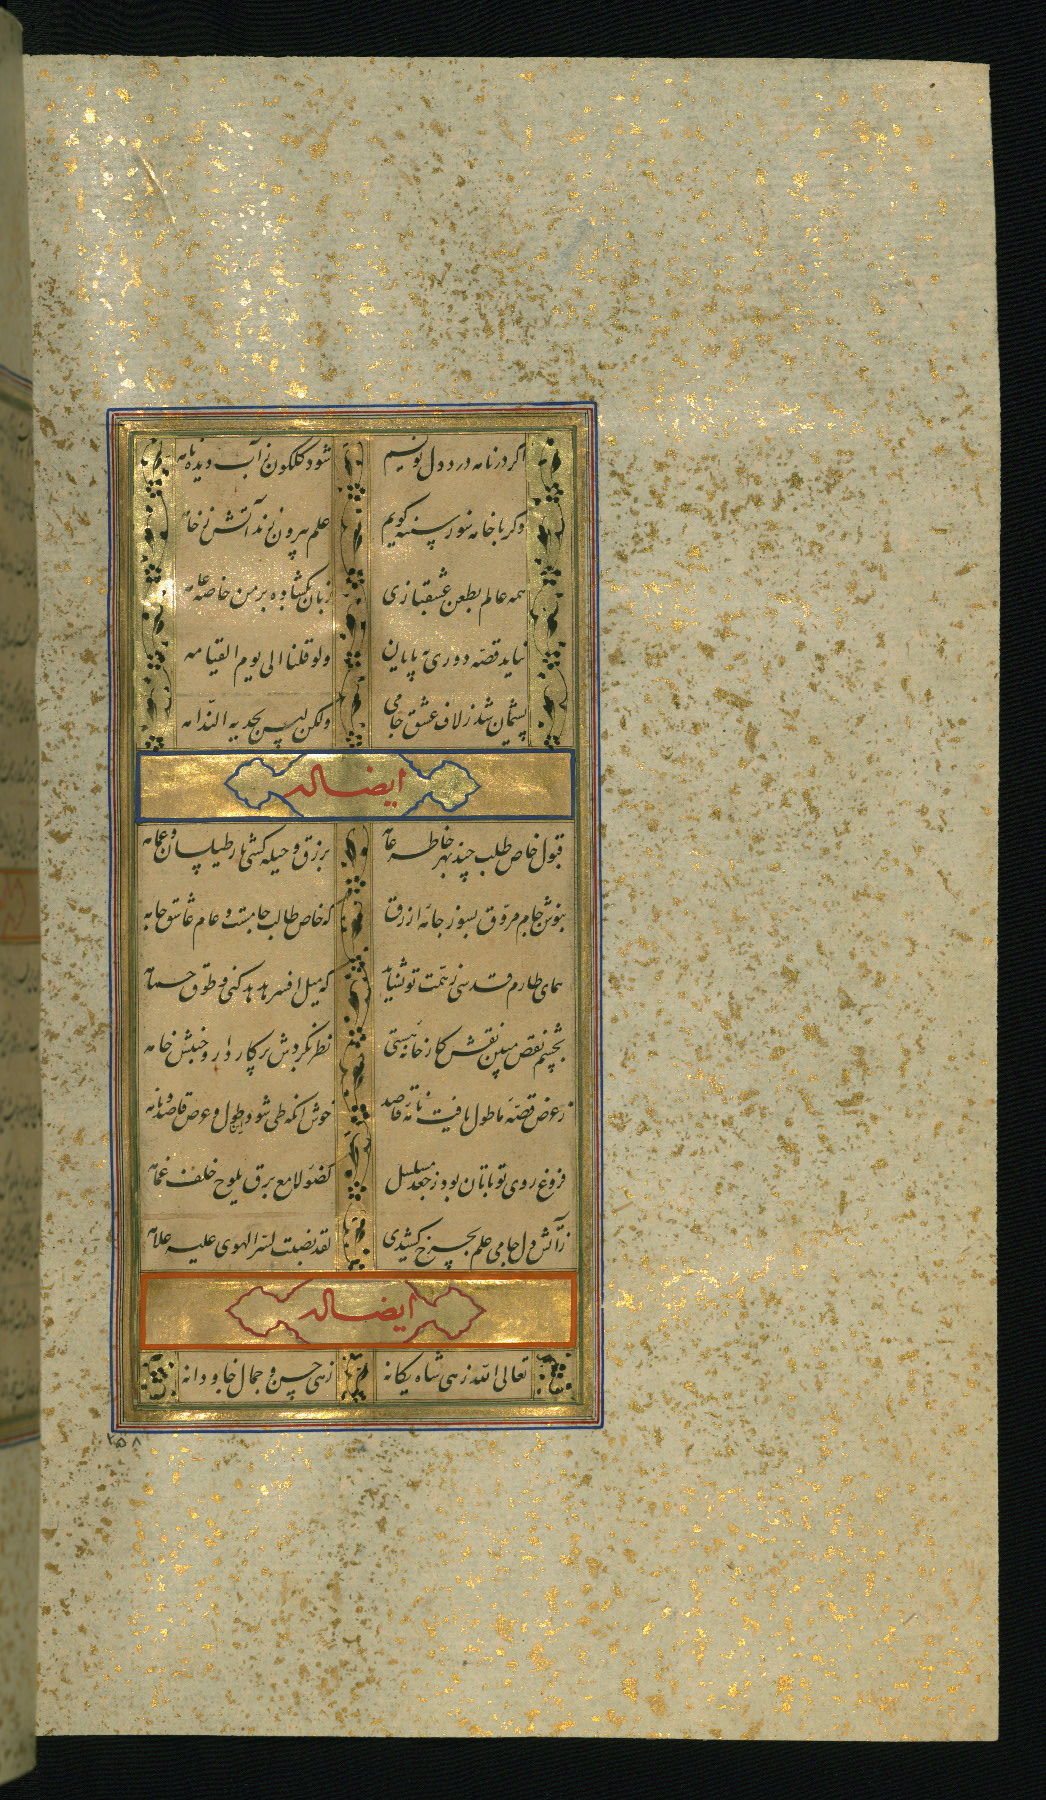 اگر در نامه درد دل نویسم شود گلگون ز آب دیده نامه
وگر با خامه سوز سینه گویم علم بیرون زند آتش ز خامه
همه عالم بطعن عشقبازی زبان بگشاده بر من خاصه عامه
نیاید قصه دوری بپایان ولو قلنا الی یوم القیامه
پشیمان شد ز لاف عشق جامی ولکن لیس یجدیه الندامه
ایضا له
قبول خاص طلب چند بهر خاطر عامه برزق و حیله کشی بار طیلسان و عمامه
بنوش جام مروق بسوز جامه ازرق که خاص طالب جامست و عام عاشق جامه
همای طارم قدسی ز همت تو نشاید که میل افسر هدهد کنی و طوق حمامه
بچشم نقص مبین نقش کارخانه هستی نظر بگردش پرکار دار و جنبش خامه
ز عرض قصه ما طول یافت نامه قاصد خوش آنکه طی شود طول و عرض قاصد و نامه
فروغ روی تو تابان بود ز جعد مسلسل کضوء لامع برق یلوح خلف غمامه
ز آتش دل جامی علم بچرخ کشیدی لقد نصبت لسر الهوی علیه علامه
ایضا له
تعالی الله زهی شاه یگانه زهی حسن و جمال جاودانه
۲۵۸